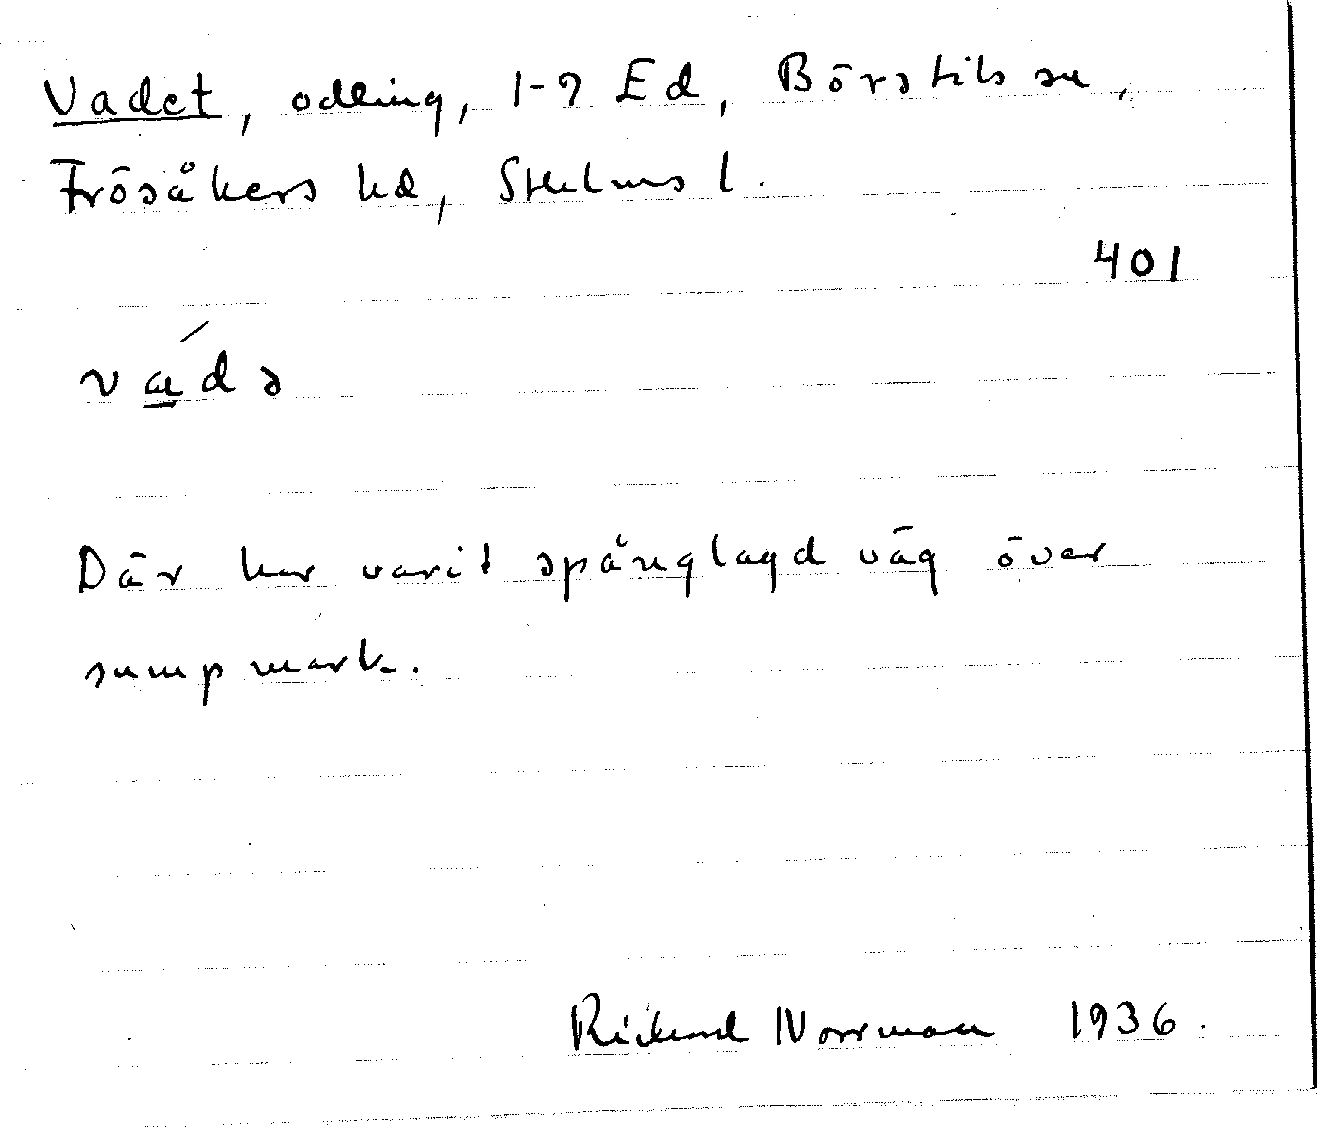 Vadet, odling, 1-9 Ed, Börstils sn,
Frösåkers hd, Sthlms l.
401
vádə
Där har varit spånglagd väg över
sumpmark.
Rickard Norrman 1936.